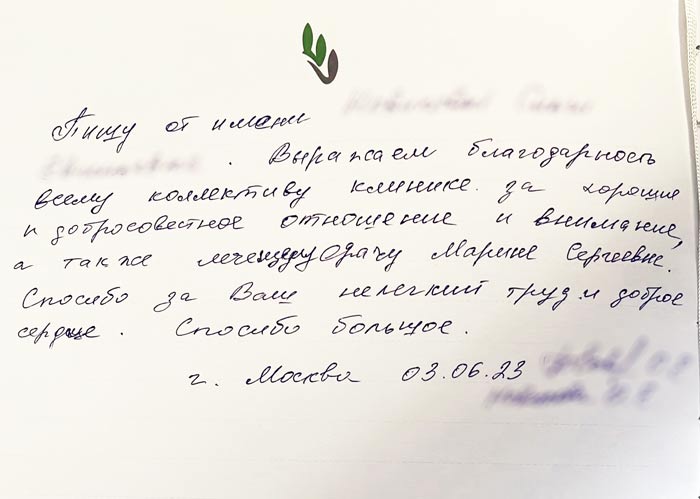 Пишу от имени
. Выражаем благодарность
всему коллективу клинике за хорошие
и добросовестное отношение и внимание,
а также лечещему врачу Марине Сергеевне.
Спосибо за Ваш нелегкий труд и доброе
сердце. Спосибо большое.
г. Москва 03.06.23